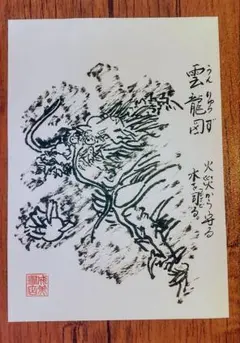 雲龍図
うんりゅうず
火災から守る
水を司る